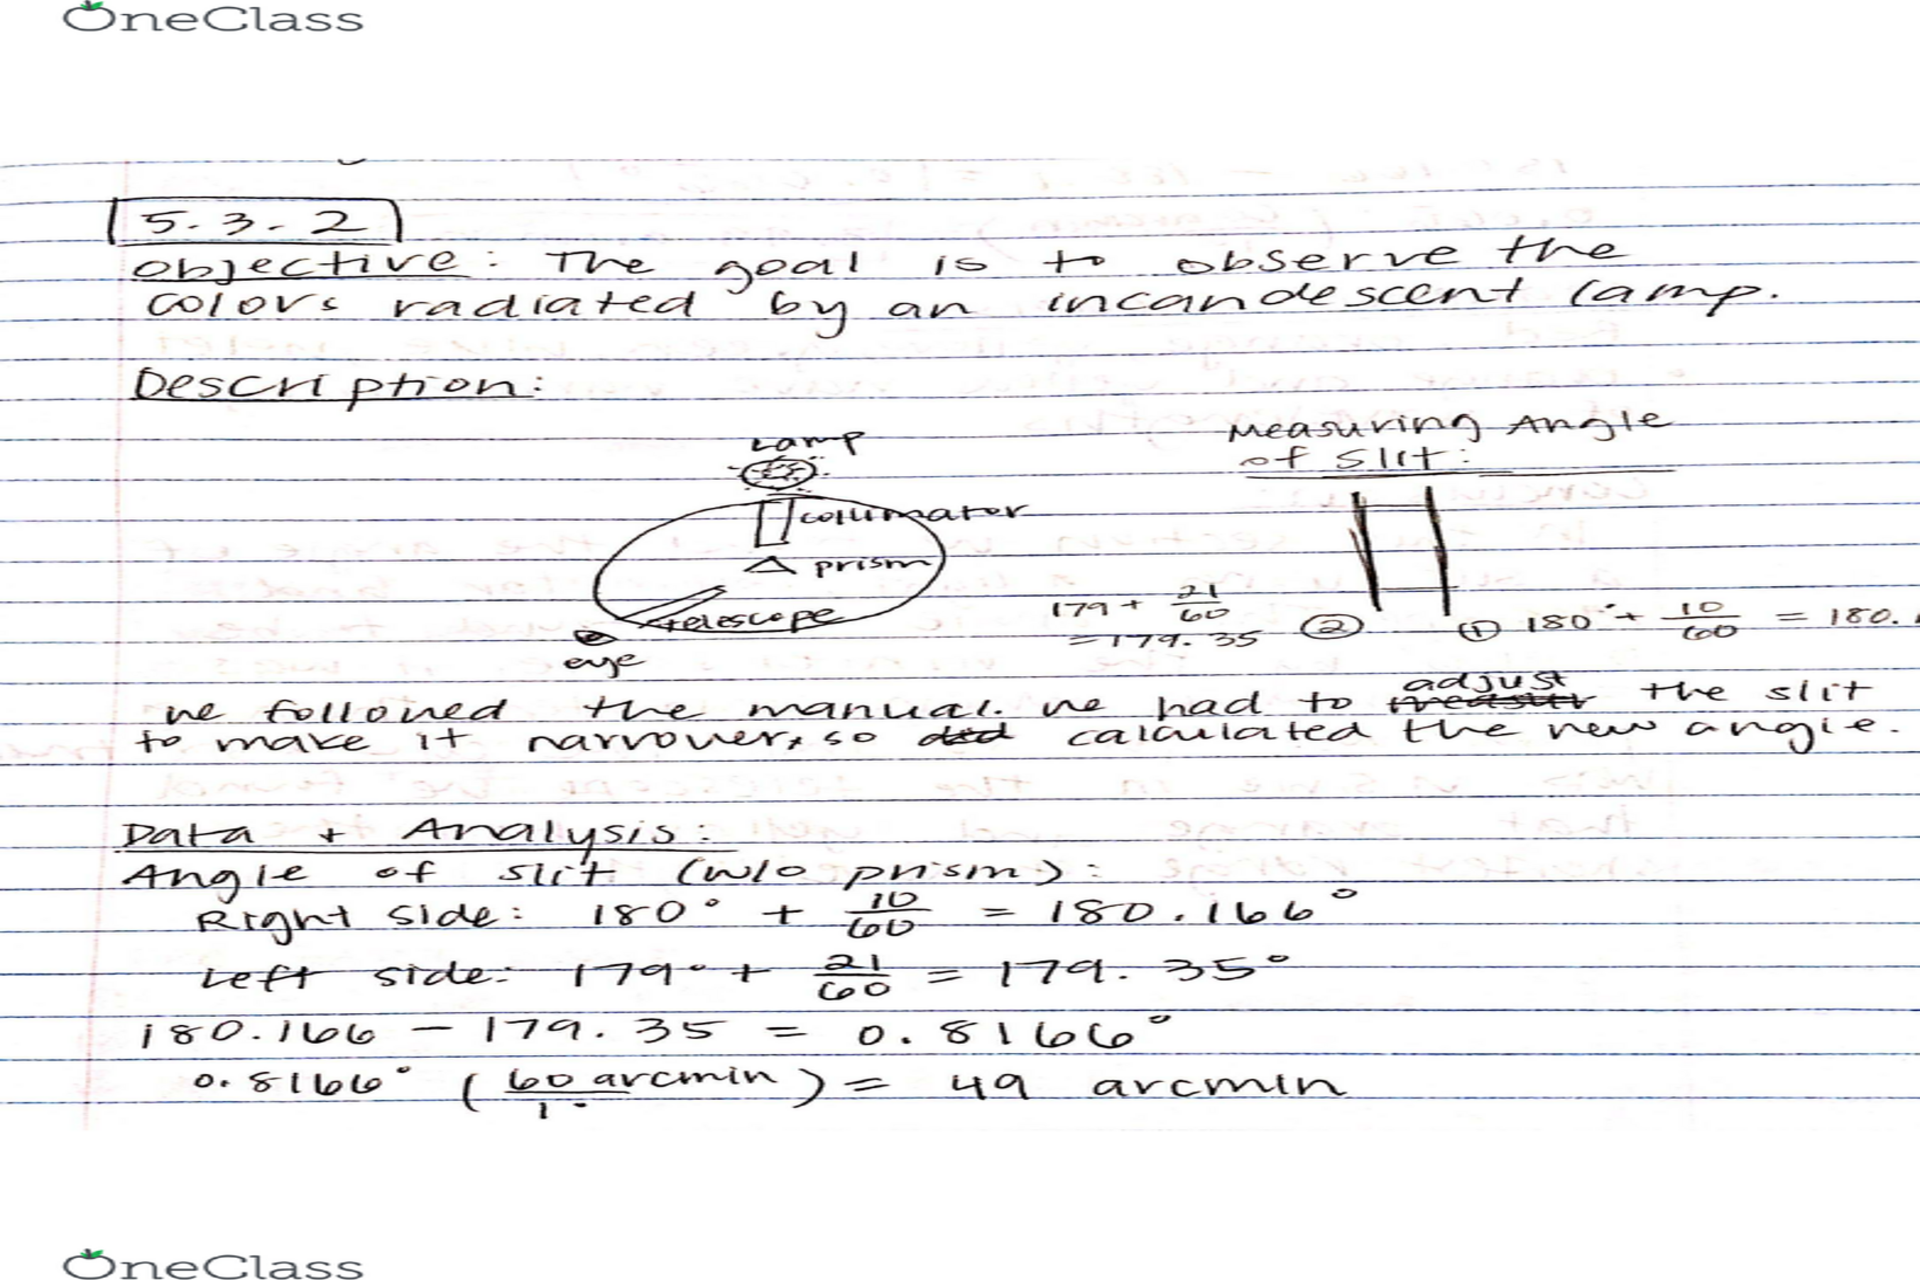 OneClass
5.3.2
Objective: The goal is to observe the
colors radiated by an incandescent lamp.
Description:
Measuring Angle
of Slit:
Lamp
collimator
prism
telescope
eye
179 + 21/60
= 179.35
②
① 180° + 10/60 = 180.
we followed the manual. we had to adjust the slit
to make it narrower, so calculated the new angle.
Data + Analysis:
Angle of slit (w/o prism):
Right side: 180° + 10/60 = 180.166°
Left side: 179° + 21/60 = 179.35°
180.166 - 179.35 = 0.8166°
0.8166° (60 arcmin/1°) = 49 arcmin
OneClass